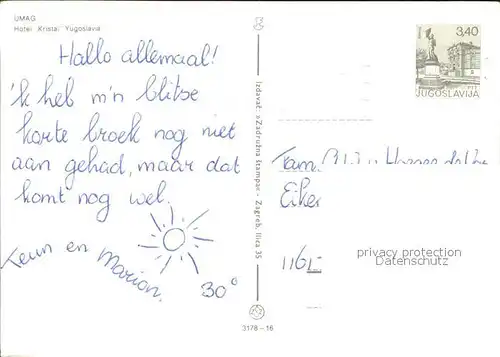 UMAG
Hotel Kristal Yugoslavia
Hallo allemaal!
'k heb m'n blitse
korte broek nog niet
aan gehad, maar dat
komt nog wel.
Teun en Marion.
30°
Izdavač: »Zadružna štampa« - Zagreb, Ilica 35
3178-16
3,40
JUGOSLAVIJA
Fam.
privacy protection
Datenschutz